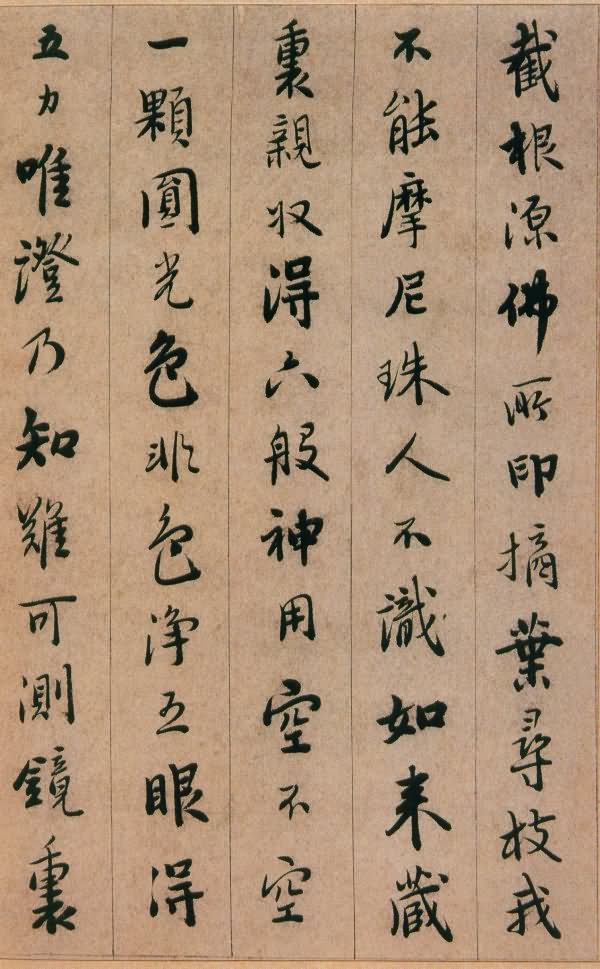 截根源佛所印摘葉尋枝我
不能摩尼珠人不識如来藏
裏親収得六般神用空不空
一顆圓光色非色浄五眼得
五力唯證乃知難可測鏡裏